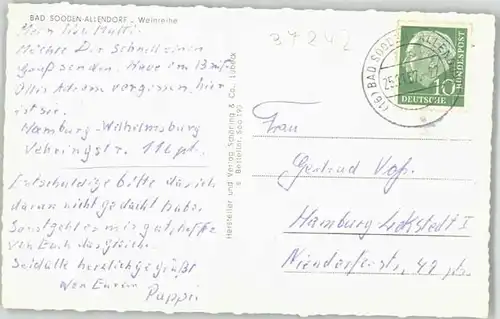 BAD SOODEN-ALLENDORF - Weinreihe
37242
Mein liebe Mutti.
Möchte Dir schnell einen
Gruß senden. Habe im 13 auf
Ottis Adresse vergessen, hier
ist sie.
Hamburg-Wilhelmsburg
Vehringstr. 116 pt.
Entschuldige bitte das ich
daran nicht gedacht habe.
Sonst geht es mir gut, hoffe
von Euch dasgleich.
Seid alle herzlich gegrüßt
von Euren
Pappi
Hersteller und Verlag Schöning & Co., Lübeck
Bestellnr. Soo 195
(16) BAD SOODEN-ALLEN
DEUTSCHE
BUNDESPOST
10
Frau
Gertrud Voß.
Hamburg Lokstedt I
42 pt.